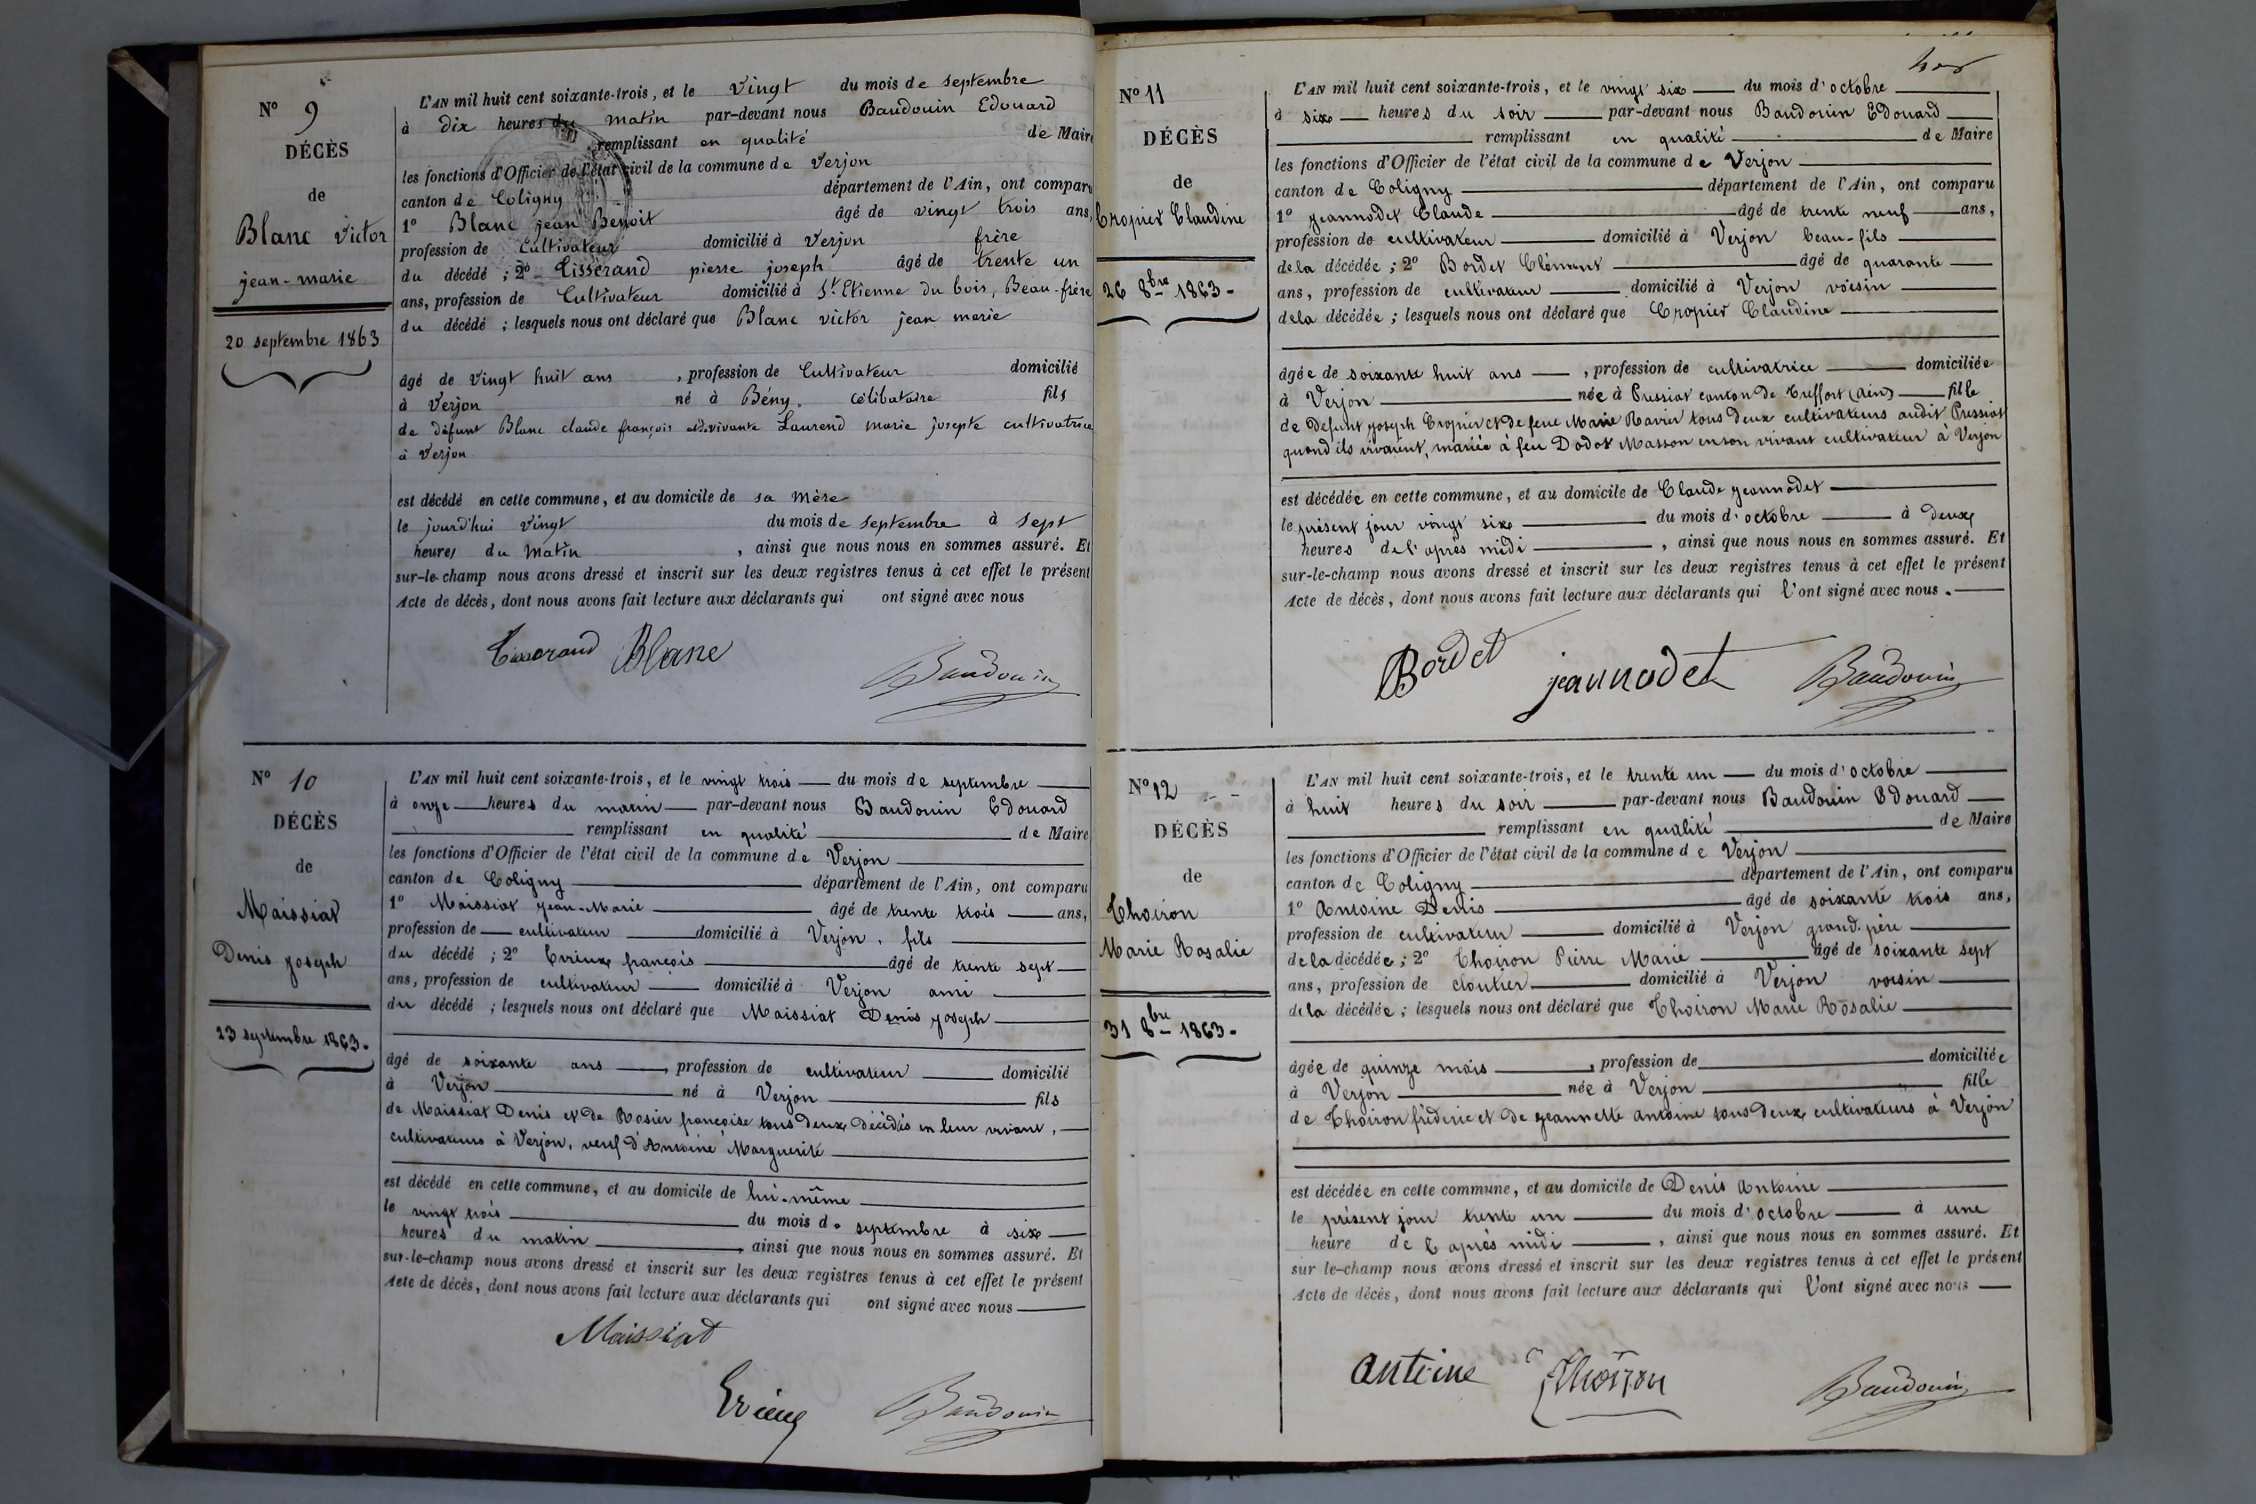 N° 9
DÉCÈS
de
Blanc victor
jean-marie
20 septembre 1863
L'AN mil huit cent soixante-trois, et le vingt du mois de septembre
à dix heures du matin par-devant nous Baudouin Edouard
remplissant en qualité de Maire
les fonctions d'Officier de l'état civil de la commune de Verjon
canton de Coligny département de l'Ain, ont comparu
1° Blanc jean Benoit âgé de vingt trois ans,
profession de Cultivateur domicilié à Verjon frère
du décédé ; 2° Tisserand pierre joseph âgé de trente un
ans, profession de Cultivateur domicilié à St. Etienne du bois, Beau-frère
du décédé ; lesquels nous ont déclaré que Blanc victor jean marie
âgé de vingt huit ans , profession de Cultivateur domicilié
à Verjon né à Bény. célibataire fils
de défunt Blanc claude françois et de vivante Laurend marie josepte cultivatrice
à Verjon
est décédé en cette commune, et au domicile de sa mère
le jourd'hui vingt du mois de septembre à sept
heures du matin , ainsi que nous nous en sommes assuré. Et
sur-le-champ nous avons dressé et inscrit sur les deux registres tenus à cet effet le présent
Acte de décès, dont nous avons fait lecture aux déclarants qui ont signé avec nous
Tisserand Blanc
Baudouin
N° 10
DÉCÈS
de
Maissiat
Denis joseph
23 septembre 1863.
L'AN mil huit cent soixante-trois, et le vingt trois du mois de septembre
à onze heures du matin par-devant nous Baudouin Edouard
remplissant en qualité de Maire
les fonctions d'Officier de l'état civil de la commune de Verjon
canton de Coligny département de l'Ain, ont comparu
1° Maissiat jean-Marie âgé de trente trois ans,
profession de cultivateur domicilié à Verjon, fils
du décédé ; 2° françois âgé de trente sept
ans, profession de cultivateur domicilié à Verjon ami
du décédé ; lesquels nous ont déclaré que Maissiat Denis joseph
âgé de soixante ans , profession de cultivateur domicilié
à Verjon né à Verjon fils
de Maissiat Denis et de Rosier françoise tous deux décédés en leur vivant,
cultivateurs à Verjon, veuf d'Antoine Marguerite
est décédé en cette commune, et au domicile de lui-même
le vingt trois du mois de septembre à six
heures du matin , ainsi que nous nous en sommes assuré. Et
sur-le-champ nous avons dressé et inscrit sur les deux registres tenus à cet effet le présent
Acte de décès, dont nous avons fait lecture aux déclarants qui ont signé avec nous
Maissiat
Baudouin
N° 11
DÉCÈS
de
Cropier Claudine
26 8bre 1863.
L'AN mil huit cent soixante-trois, et le vingt six du mois d'octobre
à six heures du soir par-devant nous Baudouin Edouard
remplissant en qualité de Maire
les fonctions d'Officier de l'état civil de la commune de Verjon
canton de Coligny département de l'Ain, ont comparu
1° Jeannodet Claude âgé de trente neuf ans,
profession de cultivateur domicilié à Verjon beau-fils
de la décédée ; 2° Bordet Clément âgé de quarante
ans, profession de cultivateur domicilié à Verjon voisin
de la décédée ; lesquels nous ont déclaré que Cropier Claudine
âgée de soixante huit ans , profession de cultivatrice domiciliée
à Verjon née à Pressiat canton de Treffort (Ain) fille
de Defunt joseph Cropier et de feue Marie Ravier tous deux cultivateurs audit Pressiat
quand ils vivaient, mariée à feu Dodot Masson en son vivant cultivateur à Verjon
est décédée en cette commune, et au domicile de Claude Jeannodet
le présent jour vingt six du mois d'octobre à deux
heures de l'après midi , ainsi que nous nous en sommes assuré. Et
sur-le-champ nous avons dressé et inscrit sur les deux registres tenus à cet effet le présent
Acte de décès, dont nous avons fait lecture aux déclarants qui l'ont signé avec nous.
Bordet jeannodet Baudouin
N° 12
DÉCÈS
de
Thoiron
Marie Rosalie
31 8bre 1863.
L'AN mil huit cent soixante-trois, et le trente un du mois d'octobre
à huit heures du soir par-devant nous Baudouin Edouard
remplissant en qualité de Maire
les fonctions d'Officier de l'état civil de la commune de Verjon
canton de Coligny département de l'Ain, ont comparu
1° Antoine Denis âgé de soixante trois ans,
profession de cultivateur domicilié à Verjon grand-père
de la décédée ; 2° Thoiron Pierre Marie âgé de soixante sept
ans, profession de cloutier domicilié à Verjon voisin
de la décédée ; lesquels nous ont déclaré que Thoiron Marie Rosalie
âgée de quinze mois , profession de domiciliée
à Verjon née à Verjon fille
de Thoiron fréderic et de jeannette antoine tous deux cultivateurs à Verjon
est décédée en cette commune, et au domicile de Denis Antoine
le présent jour trente un du mois d'octobre à une
heure de l'après midi , ainsi que nous nous en sommes assuré. Et
sur le-champ nous avons dressé et inscrit sur les deux registres tenus à cet effet le présent
Acte de décès, dont nous avons fait lecture aux déclarants qui l'ont signé avec nous
antoine Thoiron Baudouin